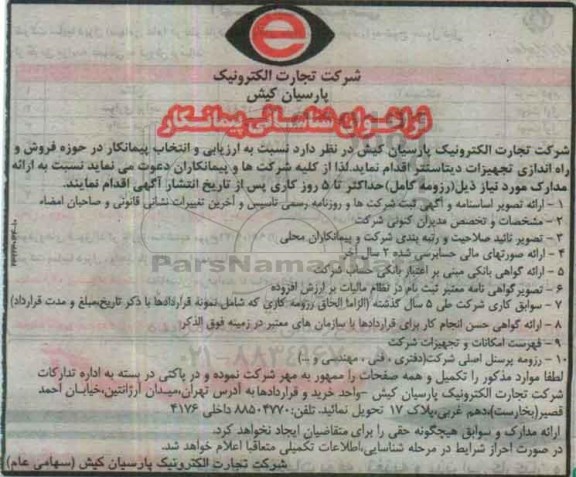 شرکت تجارت الکترونیک
پارسیان کیش
فراخوان شناسائی پیمانکار
شرکت تجارت الکترونیک پارسیان کیش در نظر دارد نسبت به ارزیابی و انتخاب پیمانکار در حوزه فروش و
راه اندازی تجهیزات دیتاسنتر اقدام نماید.لذا از کلیه شرکت ها و پیمانکاران دعوت می نماید نسبت به ارائه
مدارک مورد نیاز ذیل(رزومه کامل)حداکثر تا ۵ روز کاری پس از تاریخ انتشار آگهی اقدام نمایند.
۱ - ارائه تصویر اساسنامه و آگهی ثبت شرکت ها و روزنامه رسمی تاسیس و آخرین تغییرات نشانی قانونی و صاحبان امضاء
۲ - مشخصات و تخصص مدیران کنونی شرکت
۳ - تصویر تائید صلاحیت و رتبه بندی شرکت و پیمانکاران محلی
۴ - ارائه صورتهای مالی حسابرسی شده ۲ سال آخر
۵ - ارائه گواهی بانکی مبنی بر اعتبار بانکی حساب شرکت
۶ - تصویر گواهی نامه معتبر ثبت نام در نظام مالیات بر ارزش افزوده
۷ - سوابق کاری شرکت طی ۵ سال گذشته (الزاما الحاق رزومه کاری که شامل نمونه قراردادها با ذکر تاریخ،مبلغ و مدت قرارداد)
۸ - ارائه گواهی حسن انجام کار برای قراردادها با سازمان های معتبر در زمینه فوق الذکر
۹ - فهرست امکانات و تجهیزات شرکت
۱۰ - رزومه پرسنل اصلی شرکت(دفتری ، فنی ، مهندسی و ...)
لطفا موارد مذکور را تکمیل و همه صفحات را ممهور به مهر شرکت نموده و در پاکتی در بسته به اداره تدارکات
شرکت تجارت الکترونیک پارسیان کیش -واحد خرید و قراردادها به آدرس تهران،میدان آرژانتین،خیابان احمد
قصیر(بخارست)،دهم غربی،پلاک ۱۷ تحویل نمائید. تلفن:۸۸۵۰۴۷۷۰ داخلی ۴۱۷۶
ارائه مدارک و سوابق هیچگونه حقی را برای متقاضیان ایجاد نخواهد کرد.
در صورت احراز شرایط در مرحله شناسایی،اطلاعات تکمیلی متعاقبا اعلام خواهد شد.
شرکت تجارت الکترونیک پارسیان کیش (سهامی عام)